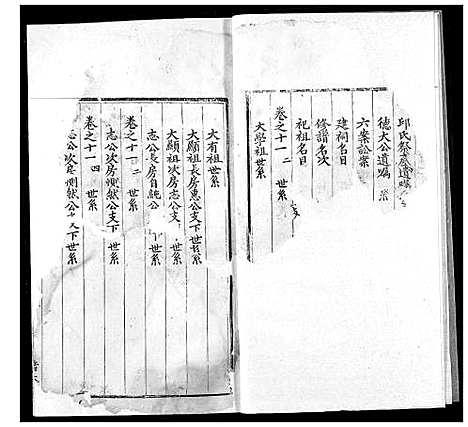 邱氏祭産遺囑
德大公遺囑
六案訟案
建祠名目
修譜名次
祀祖名目
卷之十一 二 世系
大學祖世系
大有祖世系
大顯祖長房惠公支下世系
大顯祖次房志公支下世系
志公長房自純公 下世系
卷之十一 三 世系
志公次房惻猷公支下 世系
卷之十一 四 世系
志公次房惻猷公 下世系